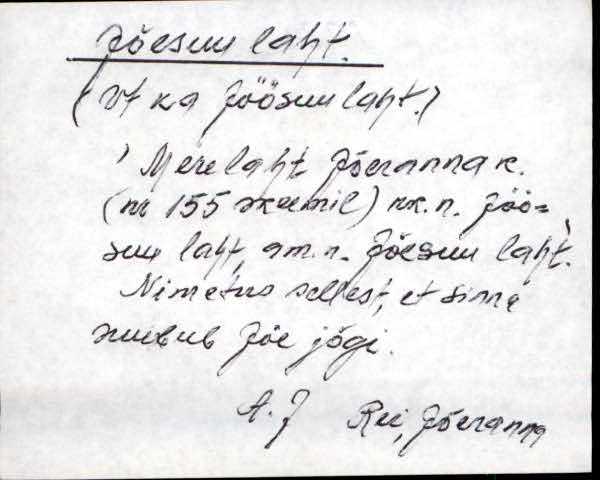 Jõesuu laht.
(Vt ka Jöösuu laht.)
'Merelaht Jõeranna k.
(nr 155 skeemil) rk.n. Jöö=
suu laht, am.n. Jõesuu laht'.
Nimetus sellest, et sinna
suubub Jõe jõgi.
A. J Rei, Jõeranna